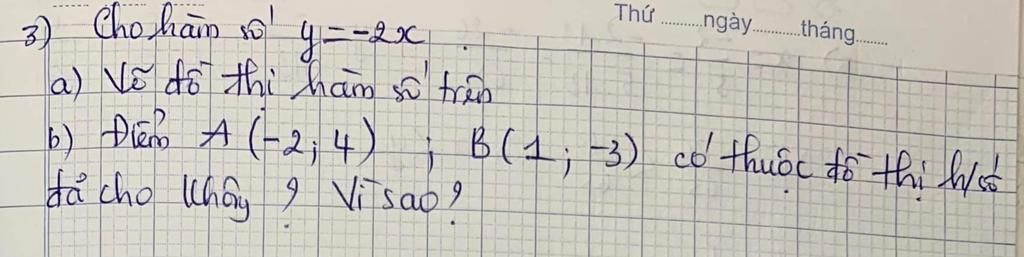 Thứ ..........ngày............tháng........
3) Cho hàm số y = -2x
a) Vẽ đồ thị hàm số trên
b) Điểm A (-2; 4) ; B(1; -3) có thuộc đồ thị h/số
đã cho không ? Vì sao ?